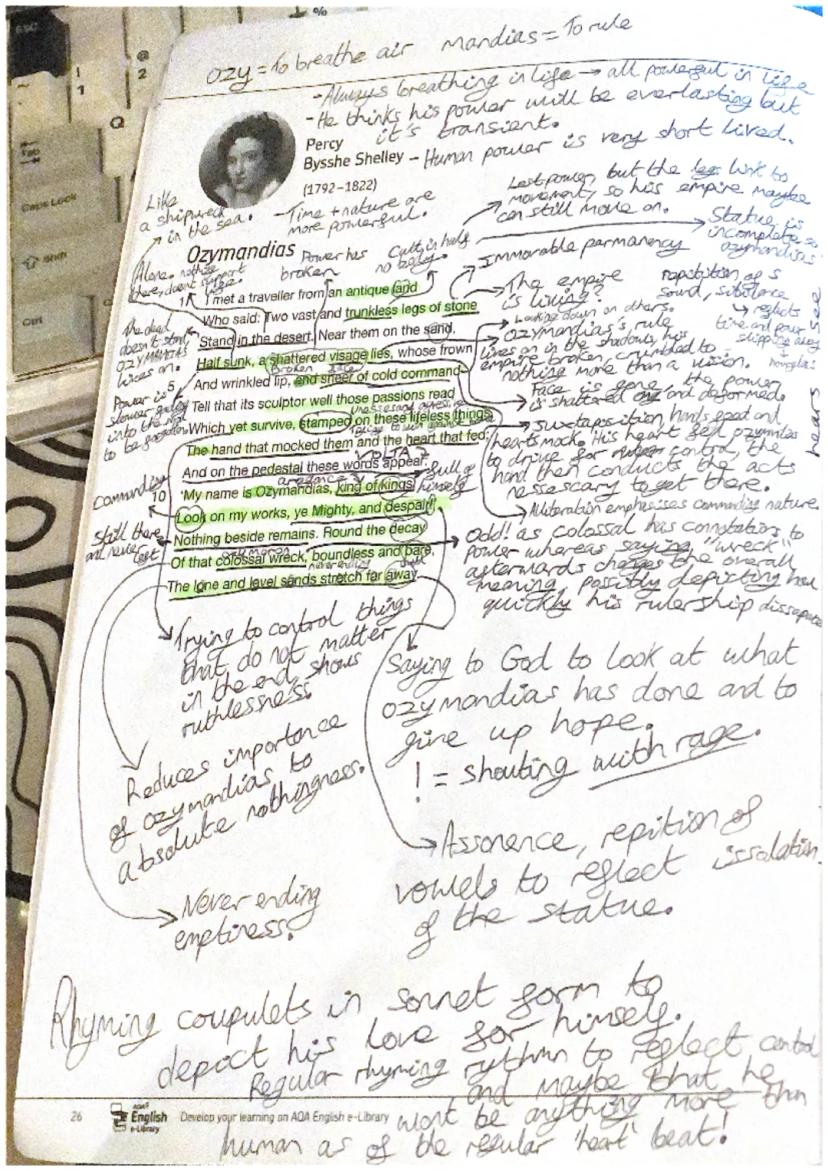 ozy = To breathe air mandias = To rule
- Always breathing in life → all powerful in life
- He thinks his power will be everlasting but
it's transient.
Percy
Bysshe Shelley - Human power is very short lived.
(1792–1822)
- Time + nature are
more powerful.
Like
a shipwreck
in the sea.
Lost power, but the legs link to
movement, so his empire maybe
can still move on.
Statue is
incomplete so
ozymandias
Ozymandias
Power has
broken
Cult, in half
no body.
Immorable parmanency
Alone. nothing
there, doesn't support
life.
1 I met a traveller from an antique land
Who said: Two vast and trunkless legs of stone
Stand in the desert. Near them on the sand,
Half sunk, a shattered visage lies, whose frown
Broken face
5 And wrinkled lip, and sneer of cold command
Tell that its sculptor well those passions read
Which yet survive, stamped on these lifeless things,
The hand that mocked them and the heart that fed;
VOLTA?
And on the pedestal these words appear:
arrogance
full of
himself
10 'My name is Ozymandias, king of kings:
Look on my works, ye Mighty, and despair!'
Nothing beside remains. Round the decay
oxymoron
Of that colossal wreck, boundless and bare,
never ending
The lone and level sands stretch far away.
The dead
doesn't stand,
OZYMANDIAS
lives on.
Power is
slower going
into the
to be forgotten
Commanding
Still there
and never
left
The empire
is living?
rapitition of s
sound, sibilance
↳ reflects
time and power
slipping away
hourglass
Looking down on others.
ozymandias's rule
lives on in the shadows, his
empire broken, crumbled to
nothing more than a vision.
Face is gone, the power
is shattered and deformed.
Juxtaposition hands feed and
hearts mock. His heart fed ozymandias
to drive for control, the
hand then conducts the acts
nessescary to get there.
Alliteration emphasises commanding nature.
Odd! as colossal has connotations to
power whereas saying "wreck"
afterwards changes the overall
meaning, possibly depicting how
quickly his rulership dissapate
Trying to control things
that do not matter
in the end, shows
ruthlessness.
Saying to God to look at what
ozymandias has done and to
give up hope.
! = shouting with rage.
Reduces importance
of ozymandias to
absolute nothingness.
Assonence, repition of
vowels to reflect issolation
of the statue.
Never ending
emptiness.
Rhyming coupulets in sonnet form to
depict his love for himself.
Regular rhyming rythmn to reflect control
and maybe that he
wont be anything more than
human as of the regular 'heart' beat!
26 AQA English e-Library Develop your learning on AQA English e-Library
Esc
Tab
Caps Lock
Shift
Ctrl
Q
!
1
@
2
%